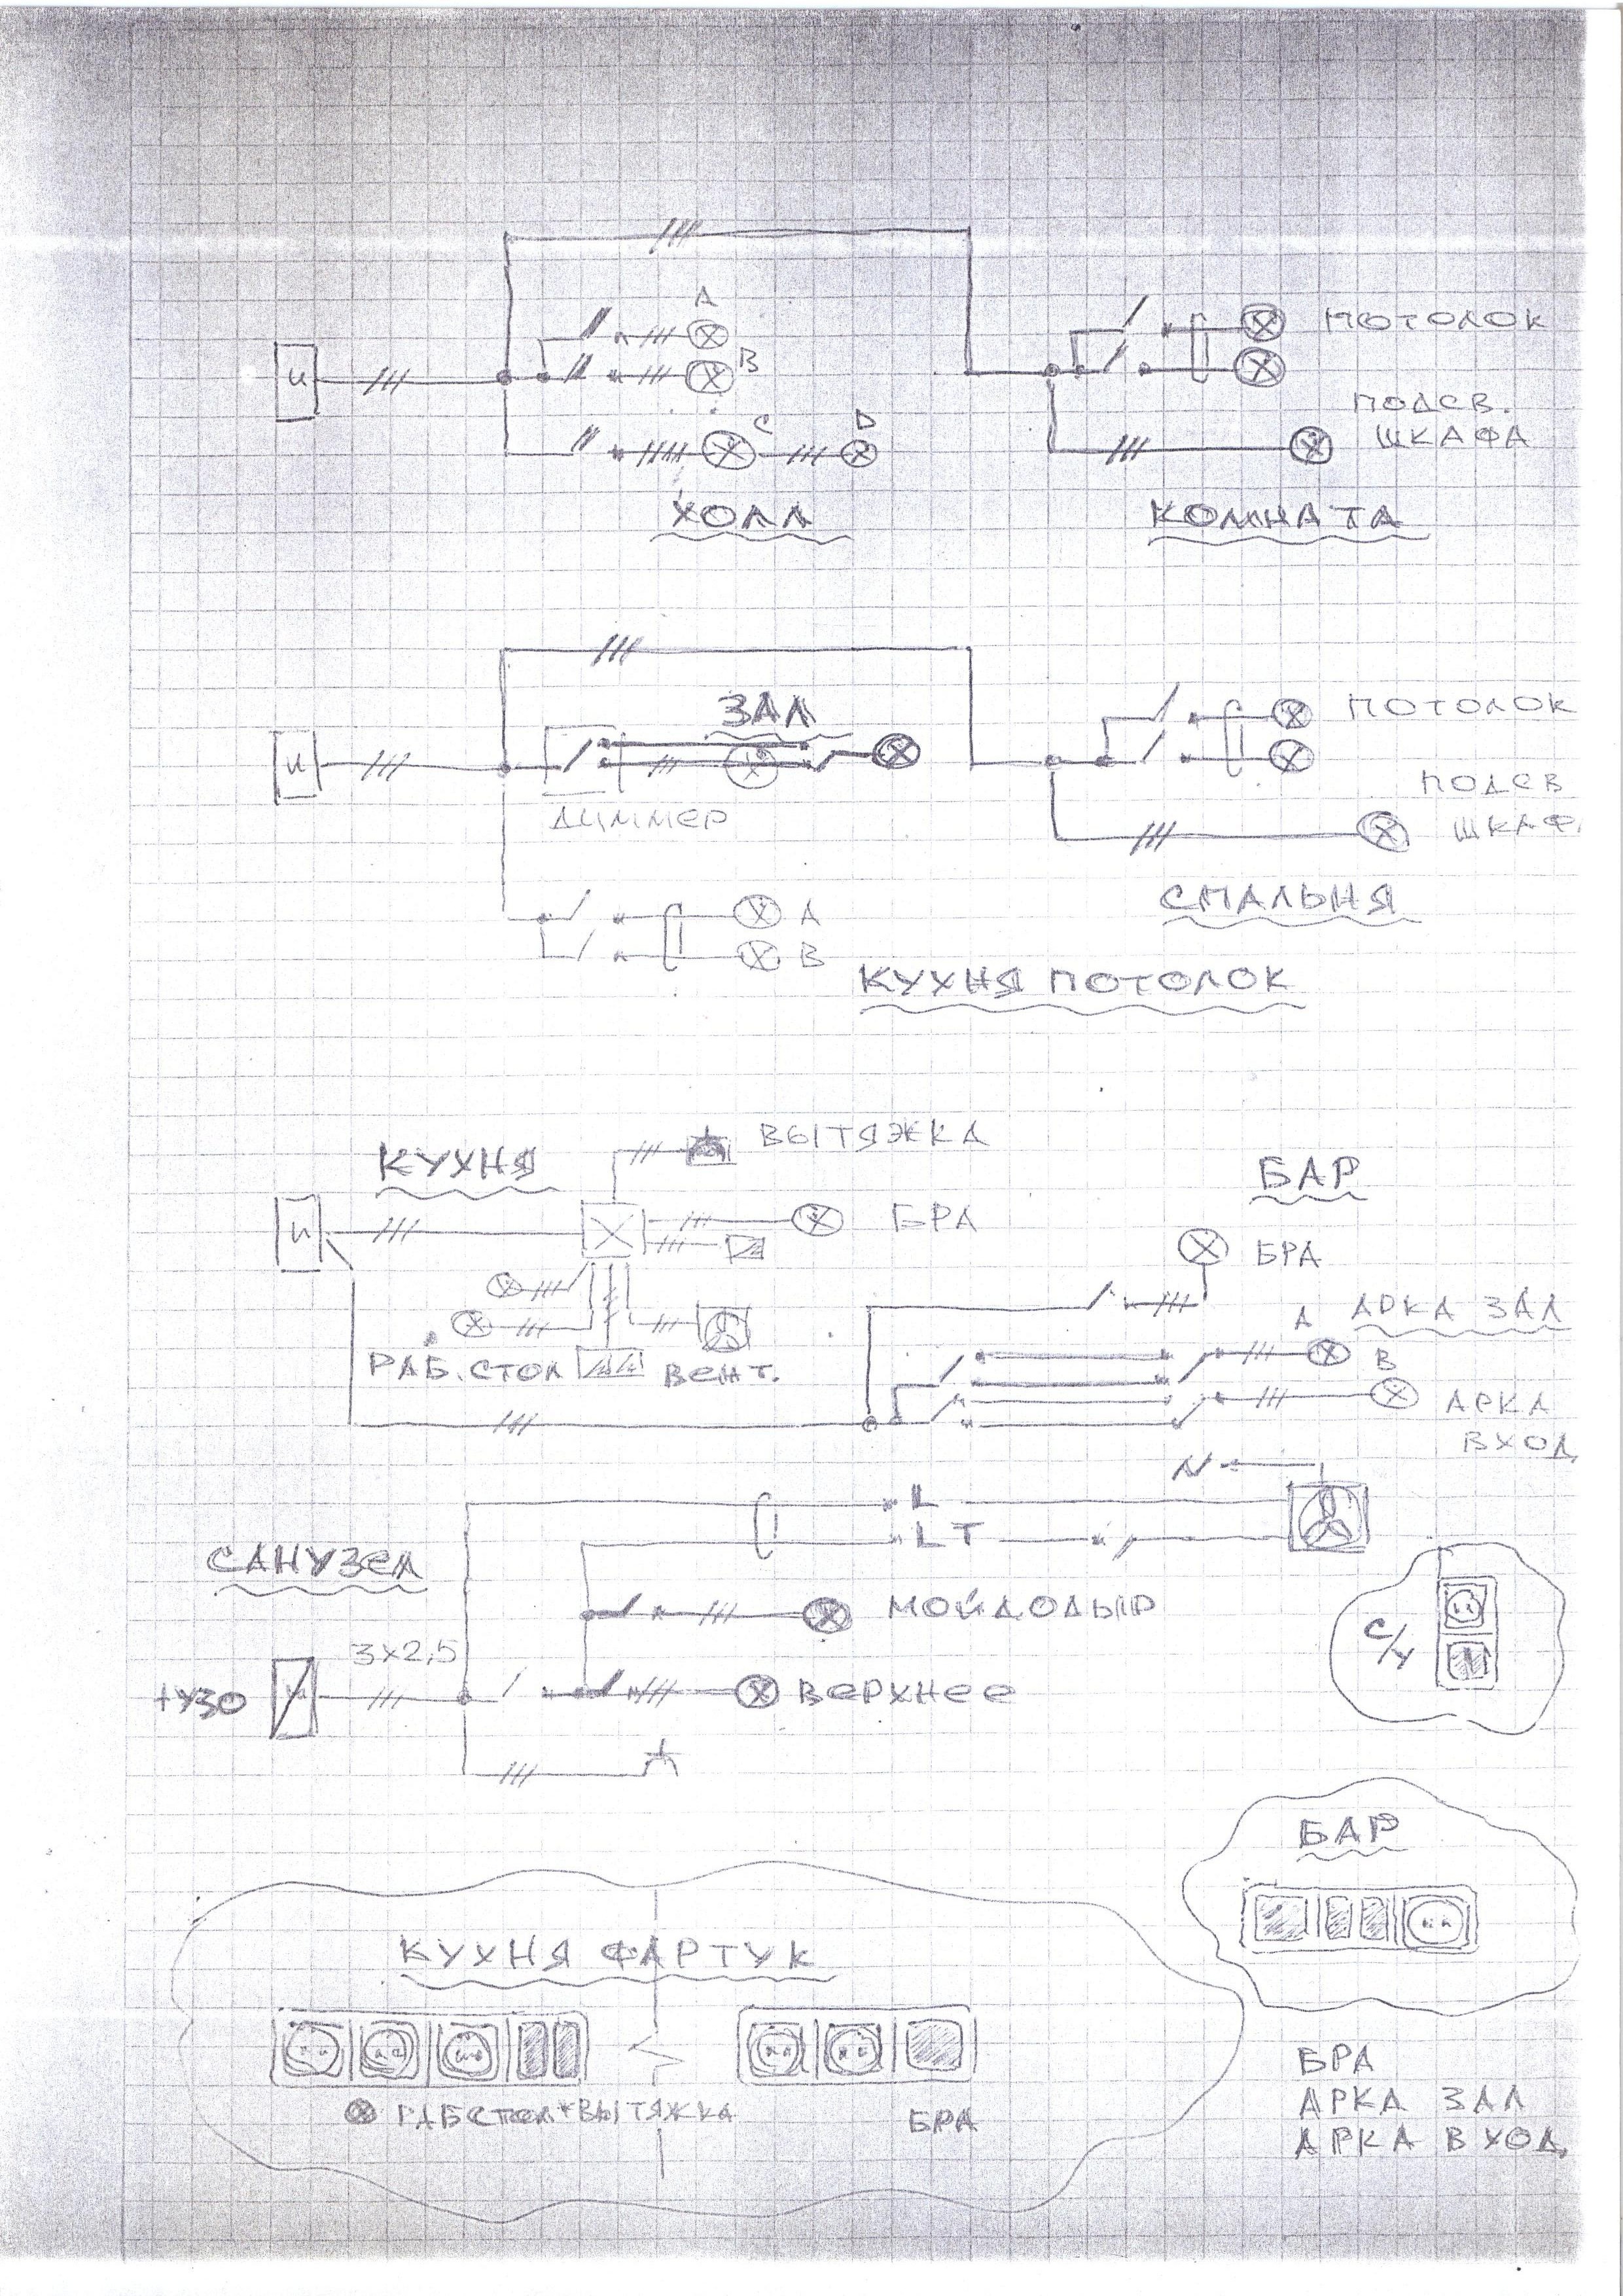 A
B
C
D
ПОТОЛОК
ПОДСВ.
ШКАФА
ХОЛЛ
КОМНАТА
ЗАЛ
ДИММЕР
ПОТОЛОК
ПОДСВ
ШКАФ
СПАЛЬНЯ
A
B
КУХНЯ ПОТОЛОК
КУХНЯ
ВЫТЯЖКА
БРА
РАБ. СТОЛ
ВЕНТ.
БАР
БРА
A
АРКА ЗАЛ
B
АРКА
ВХОД
N
L
LT
САНУЗЕЛ
МОЙДОДЫР
3х2,5
+УЗО
ВЕРХНЕЕ
С/У
БАР
КУХНЯ ФАРТУК
РАБ СТОЛ + ВЫТЯЖКА
БРА
БРА
АРКА ЗАЛ
АРКА ВХОД